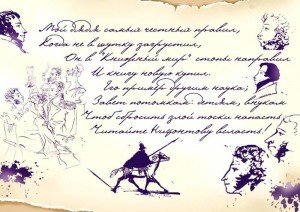 Мой дядя самый честный правил,
Когда не в шутку загрустил,
Он в "Книжный мир" стопы направил
И книгу новую купил.
Его пример другим наука;
Завет потомкам: детям, внукам
Чтоб сбросить злой тоски напасть,
Читайте Нифонтову всласть.